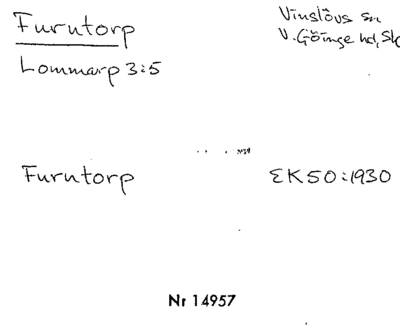 Furutorp
Vinslövs sn
Lommarp 3:5
V. Göinge hd, Sk
Furutorp
EK50:1930
Nr 14957